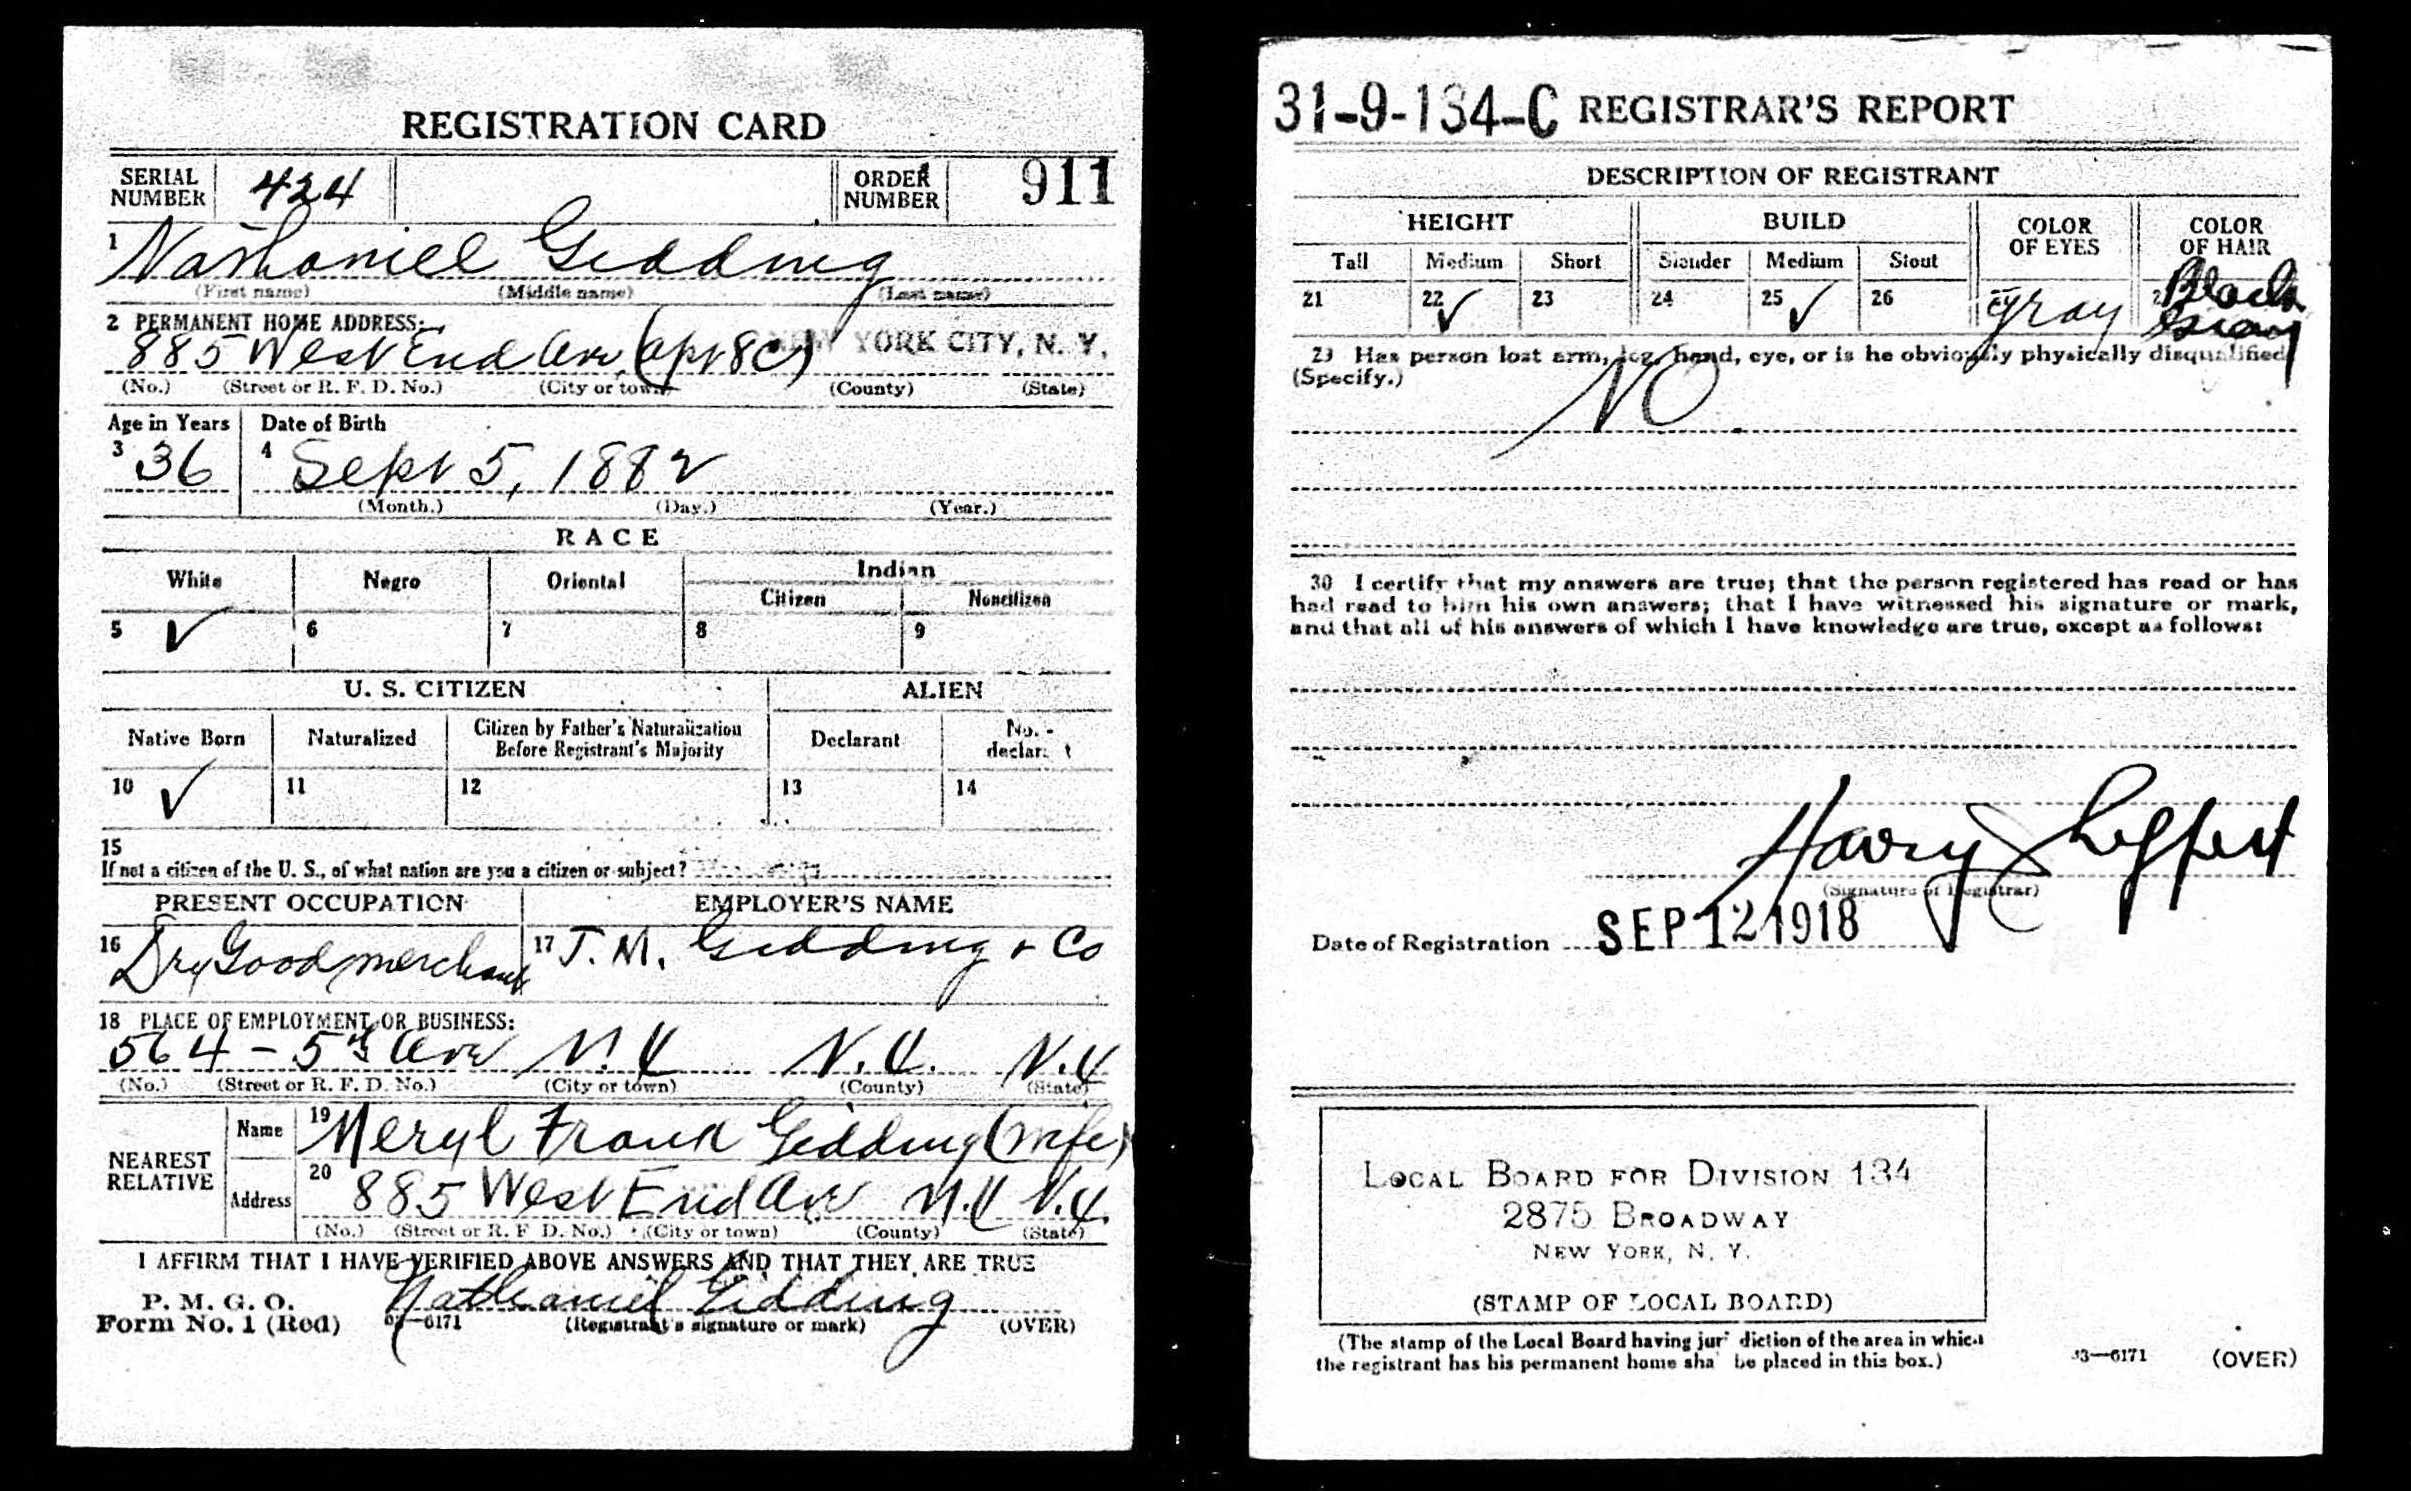 REGISTRATION CARD
SERIAL NUMBER 424 ORDER NUMBER 911
1 Nathaniel Gidding
(First name) (Middle name) (Last name)
2 PERMANENT HOME ADDRESS:
885 West End Ave. (Apt 8C) NEW YORK CITY, N. Y.
(No.) (Street or R. F. D. No.) (City or town) (County) (State)
Age in Years Date of Birth
3 36 4 Sept 5, 1882
(Month.) (Day.) (Year.)
RACE
White Negro Oriental Indian
Citizen Noncitizen
5 ✓ 6 7 8 9
U. S. CITIZEN ALIEN
Native Born Naturalized Citizen by Father's Naturalization Before Registrant's Majority Declarant Non-declarant
10 ✓ 11 12 13 14
15
If not a citizen of the U. S., of what nation are you a citizen or subject?
PRESENT OCCUPATION EMPLOYER'S NAME
16 Dry Good merchant 17 J. M. Gidding & Co
18 PLACE OF EMPLOYMENT OR BUSINESS:
564 - 5th Ave N.Y N.Y. N.Y
(No.) (Street or R. F. D. No.) (City or town) (County) (State)
NEAREST RELATIVE
Name 19 Meryl Frank Gidding (wife)
Address 20 885 West End Ave N.Y N.Y.
(No.) (Street or R. F. D. No.) (City or town) (County) (State)
I AFFIRM THAT I HAVE VERIFIED ABOVE ANSWERS AND THAT THEY ARE TRUE
P. M. G. O.
Form No. 1 (Red) 03—6171 Nathaniel Gidding
(Registrant's signature or mark) (OVER)
31-9-134-C REGISTRAR'S REPORT
DESCRIPTION OF REGISTRANT
HEIGHT BUILD COLOR OF EYES COLOR OF HAIR
Tall Medium Short Slender Medium Stout
21 22 ✓ 23 24 25 ✓ 26 27 Gray 28 Black Gray
29 Has person lost arm, leg, hand, eye, or is he obviously physically disqualified?
(Specify.)
NO.
30 I certify that my answers are true; that the person registered has read or has
had read to him his own answers; that I have witnessed his signature or mark,
and that all of his answers of which I have knowledge are true, except as follows:
Harry
(Signature of Registrar)
Date of Registration SEP 12 1918
LOCAL BOARD FOR DIVISION 134
2875 BROADWAY
NEW YORK, N. Y.
(STAMP OF LOCAL BOARD)
(The stamp of the Local Board having jurisdiction of the area in which
the registrant has his permanent home shall be placed in this box.)
03—6171 (OVER)